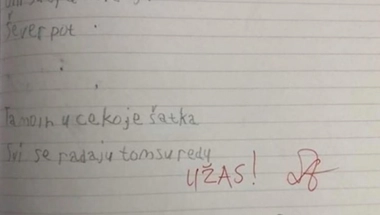 Šever pot
Tamoın u cekoje šatka
Svi se radaju tom su redu
UŽAS!